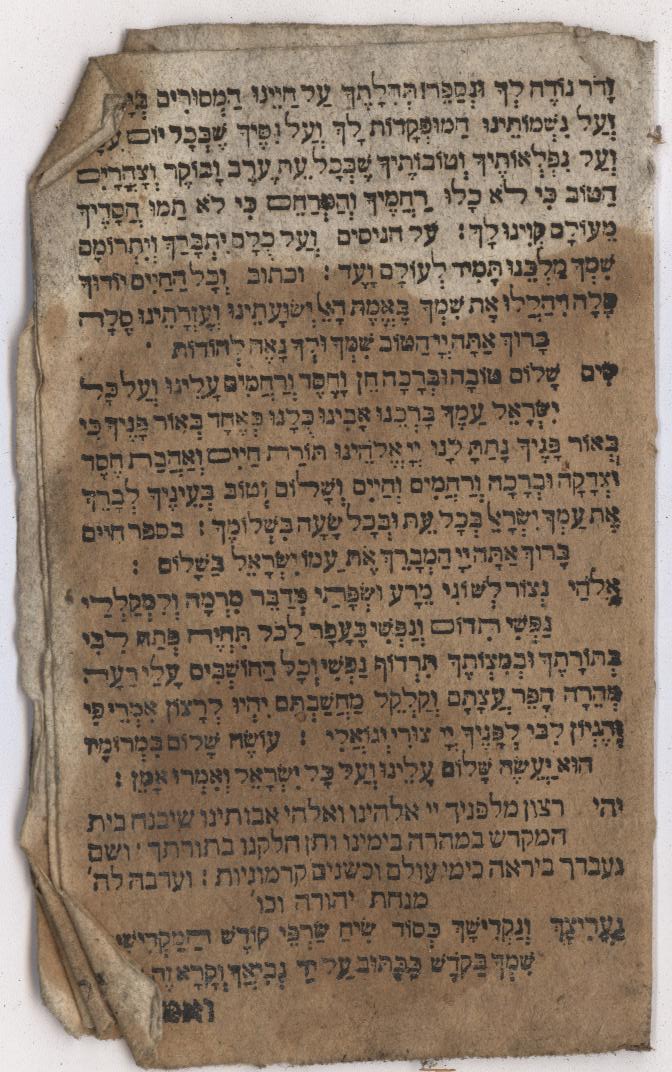 וָדֹר נוֹדֶה לְךָ וּנְסַפֵּר תְּהִלָּתֶךָ עַל חַיֵּינוּ הַמְּסוּרִים
וְעַל נִשְׁמוֹתֵינוּ הַמּוּפְקָדוֹת לָךְ וְעַל נִסֶּיךָ שֶׁבְּכָל יוֹם
וְעַל נִפְלְאוֹתֶיךָ וְטוֹבוֹתֶיךָ שֶׁבְּכָל עֵת עֶרֶב וָבוֹקֶר וְצָהֳרָיִם
הַטּוֹב כִּי לֹא כָלוּ רַחֲמֶיךָ וְהַמְרַחֵם כִּי לֹא תַמּוּ חֲסָדֶיךָ
מֵעוֹלָם קִוִּינוּ לָךְ : על הניסים וְעַל כֻּלָּם יִתְבָּרַךְ וְיִתְרוֹמַם
שִׁמְךָ מַלְכֵּנוּ תָּמִיד לְעוֹלָם וָעֶד : וכתוב וְכָל הַחַיִּים יוֹדוּךָ
סֶּלָה וִיהַלְלוּ אֶת שִׁמְךָ בֶּאֱמֶת הָאֵל יְשׁוּעָתֵינוּ וְעֶזְרָתֵינוּ סֶלָה
בָּרוּךְ אַתָּה יְיָ הַטּוֹב שִׁמְךָ וּלְךָ נָאֶה לְהוֹדוֹת .
שִׂים שָׁלוֹם טוֹבָה וּבְרָכָה חֵן וָחֶסֶד וְרַחֲמִים עָלֵינוּ וְעַל כָּל
יִשְׂרָאֵל עַמֶּךָ בָּרְכֵנוּ אָבִינוּ כֻּלָּנוּ כְּאֶחָד בְּאוֹר פָּנֶיךָ כִּי
בְּאוֹר פָּנֶיךָ נָתַתָּ לָנוּ יְיָ אֱלֹהֵינוּ תּוֹרַת חַיִּים וְאַהֲבַת חֶסֶד
וּצְדָקָה וּבְרָכָה וְרַחֲמִים וְחַיִּים וְשָׁלוֹם וְטוֹב בְּעֵינֶיךָ לְבָרֵךְ
אֶת עַמְּךָ יִשְׂרָאֵל בְּכָל עֵת וּבְכָל שָׁעָה בִּשְׁלוֹמֶךָ : בספר חיים
בָּרוּךְ אַתָּה יְיָ הַמְבָרֵךְ אֶת עַמּוֹ יִשְׂרָאֵל בַּשָּׁלוֹם :
אֱלֹהַי נְצוֹר לְשׁוֹנִי מֵרָע וּשְׂפָתַי מִדַּבֵּר מִרְמָה וְלִמְקַלְלַי
נַפְשִׁי תִדּוֹם וְנַפְשִׁי כֶּעָפָר לַכֹּל תִּהְיֶה פְּתַח לִבִּי
בְּתוֹרָתֶךָ וּבְמִצְוֹתֶיךָ תִּרְדּוֹף נַפְשִׁי וְכָל הַחוֹשְׁבִים עָלַי רָעָה
מְהֵרָה הָפֵר עֲצָתָם וְקַלְקֵל מַחֲשַׁבְתָּם יִהְיוּ לְרָצוֹן אִמְרֵי פִי
וְהֶגְיוֹן לִבִּי לְפָנֶיךָ יְיָ צוּרִי וְגוֹאֲלִי : עוֹשֶׂה שָׁלוֹם בִּמְרוֹמָיו
הוּא יַעֲשֶׂה שָׁלוֹם עָלֵינוּ וְעַל כָּל יִשְׂרָאֵל וְאִמְרוּ אָמֵן :
יהי רצון מלפניך יי אלהינו ואלהי אבותינו שיבנה בית
המקדש במהרה בימינו ותן חלקנו בתורתך : ושם
נעבדך ביראה כימי עולם וכשנים קדמוניות : וערבה לה'
מנחת יהודה וכו'
נַעֲרִיצָךְ וְנַקְדִּישָׁךְ כְּסוֹד שִׂיחַ שַׂרְפֵי קוֹדֶשׁ הַמַּקְדִּישִׁי
שִׁמְךָ בַּקֹּדֶשׁ כַּכָּתוּב עַל יַד נְבִיאֶךָ וְקָרָא